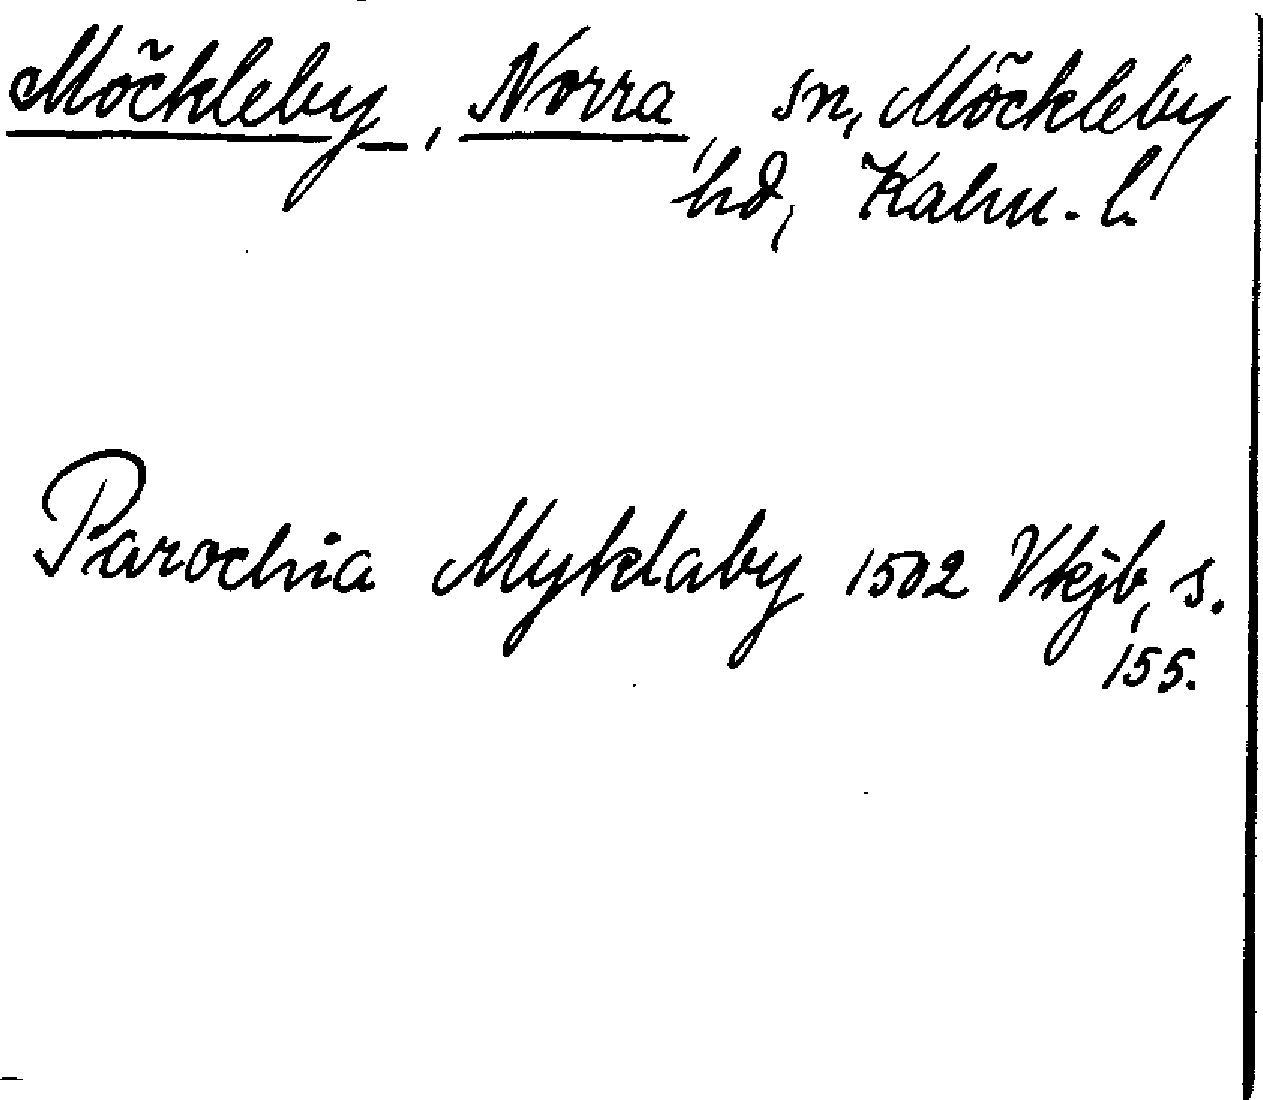 Möckleby, Norra, sn, Möckleby
hd, Kalm. l.
Parochia Myklaby 1502 Vkjb, s.
155.